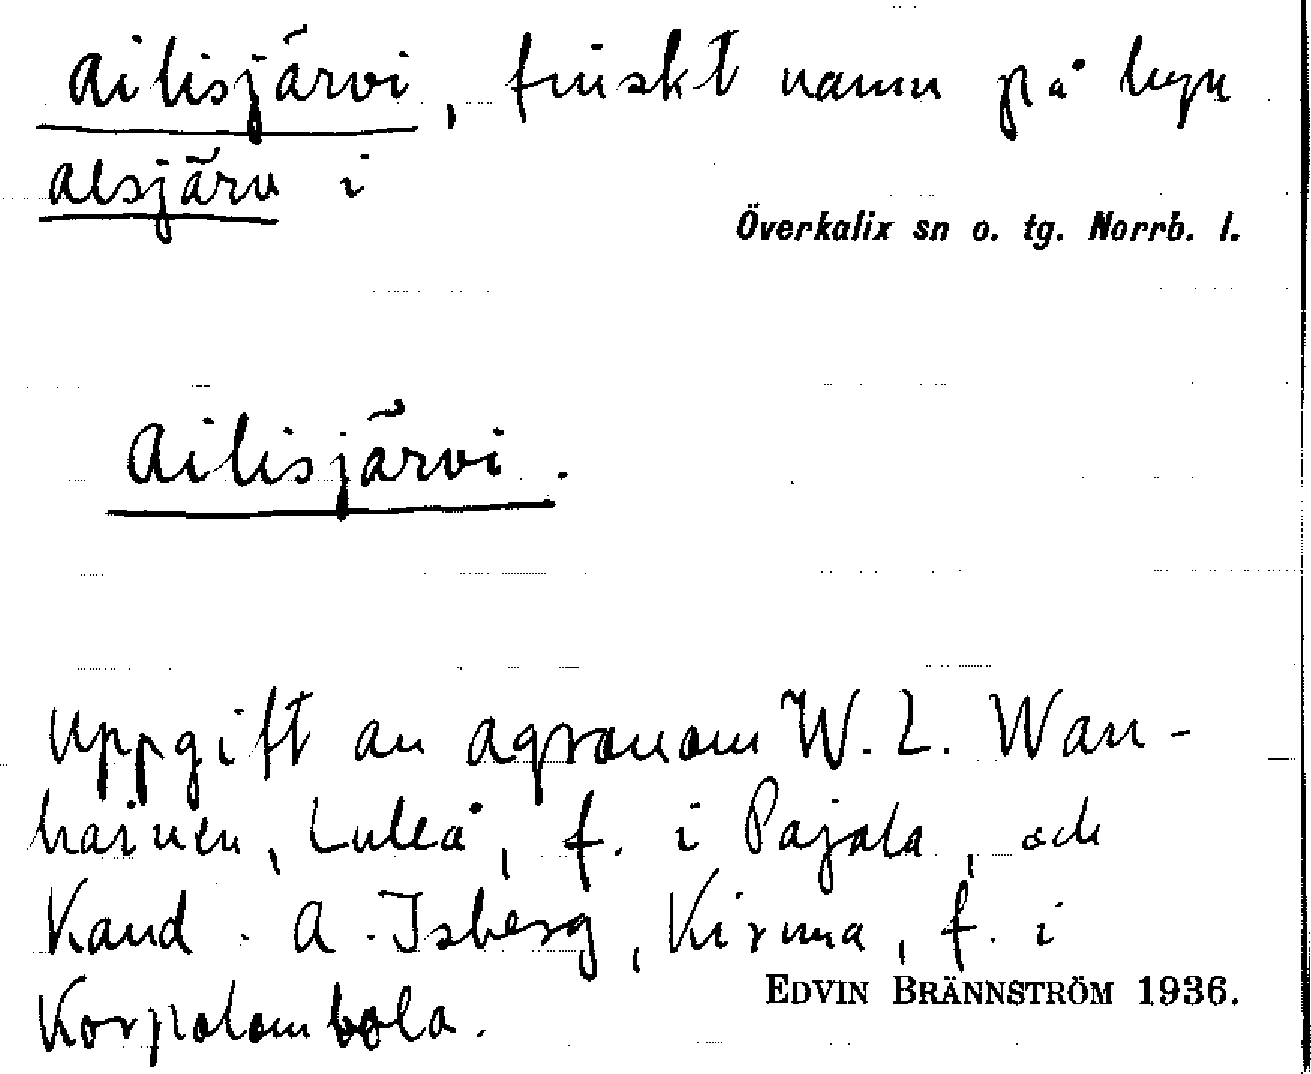 Ailisjärvi, finskt namn på byn
Alsjärv i
Överkalix sn o. tg. Norrb. l.
Ailisjärvi.
Uppgift av agronom W. L. Wan-
hainen, Luleå, f. i Pajala, och
Kand. A. Isberg, Kiruna, f. i
Korpolombolo.
EDVIN BRÄNNSTRÖM 1936.